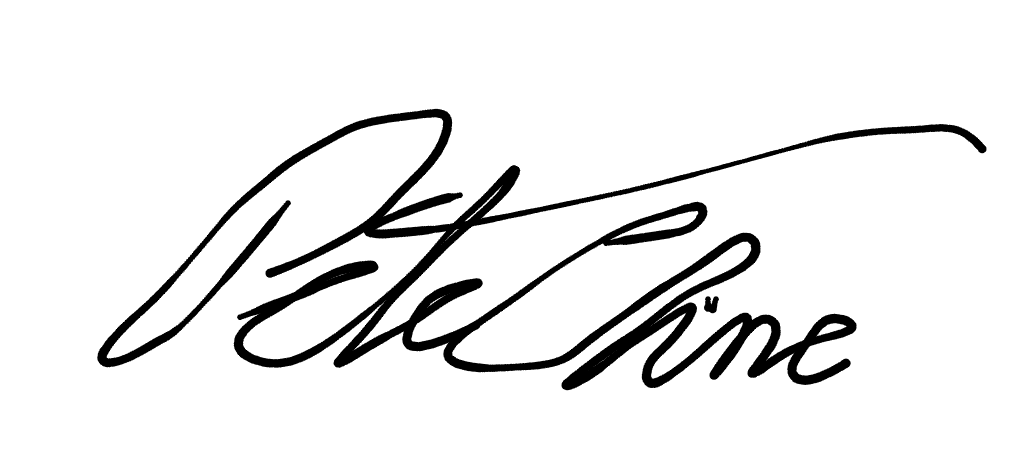 Pete Chine